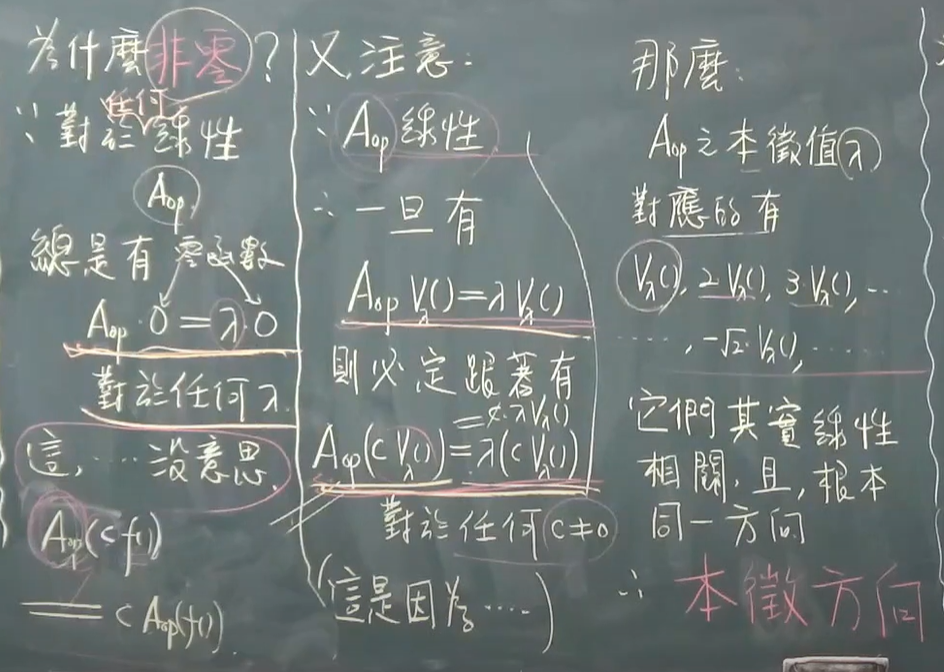 為什麼非零?
∵對於任何線性
A_op
總是有零函數
A_op·0=λ·0
對於任何λ.
這,……沒意思.
A_op(c f())
= c A_op(f()).
又,注意:
∵A_op線性
∴一旦有
A_op V_λ()=λV_λ()
則必定跟著有
=c·λV_λ()
A_op(c V_λ())=λ(c V_λ())
對於任何c≠0
(這是因為……)
那麼:
A_op之本徵值λ
對應的有
V_λ(), 2·V_λ(), 3·V_λ(),…
……,-√2·V_λ(),……
它們其實線性
相關,且,根本
同一方向
∴本徵方向